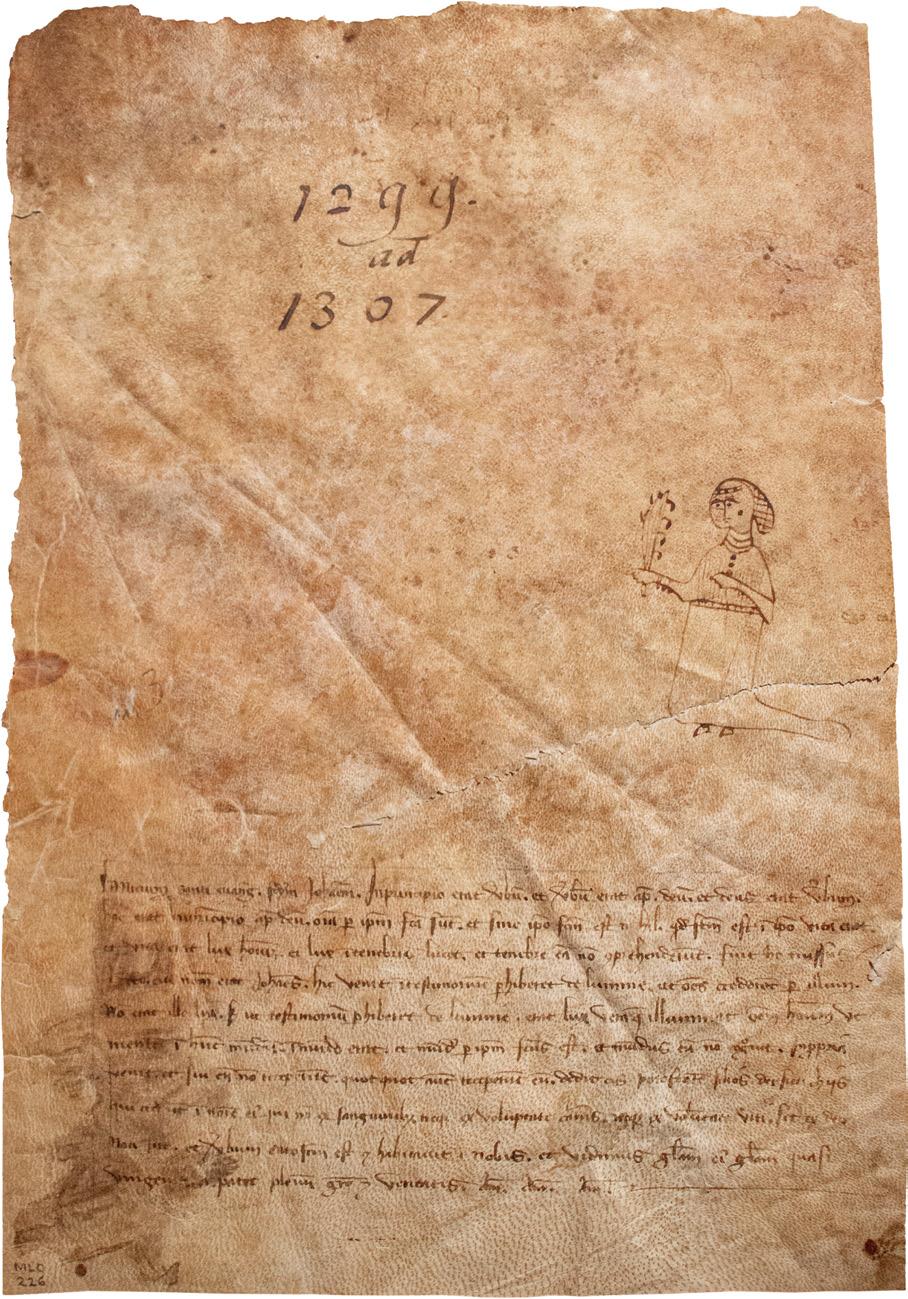 1299.
ad
1307
Inicium sancti euang. scdm Johanem. In principio erat vbu. et vbu erat ap. deu. et deus erat vbum.
hoc erat in principio ap. deu. oia p ipm fca sut. et sine ipo fcm est nihil. qd fcm est i ipo vita erat
et vita erat lux homi. et lux i tenebris lucet. et tenebre ea no oprehenderut. fuit ho missus
a deo. cui nom erat Johanes. hic venit i testimonium phiberet de lumine. ut oes crederet p illum.
No erat ille lux. s ut testimoniu phiberet de lumine. erat lux vera q illuminat oem homin ve
niente i hunc mudu. i mudo erat. et mud p ipm fcus est. et mudus eu no gout. i ppria
venit. et sui eu no receperut. quot quot aut receperut eu. dedit eis potestate filios dei fieri. hijs
qui credut i noie ei. qui no ex sanguinibz neqz ex voluptate carnis. neqz ex voluntate viri. set ex deo
nati sut. et vbum caro fcm est et habitavit i nobis. et vidimus glam ei glam quasi
unigeniti a patre plenu gre et veritatis. am. am. am.
MLC
226